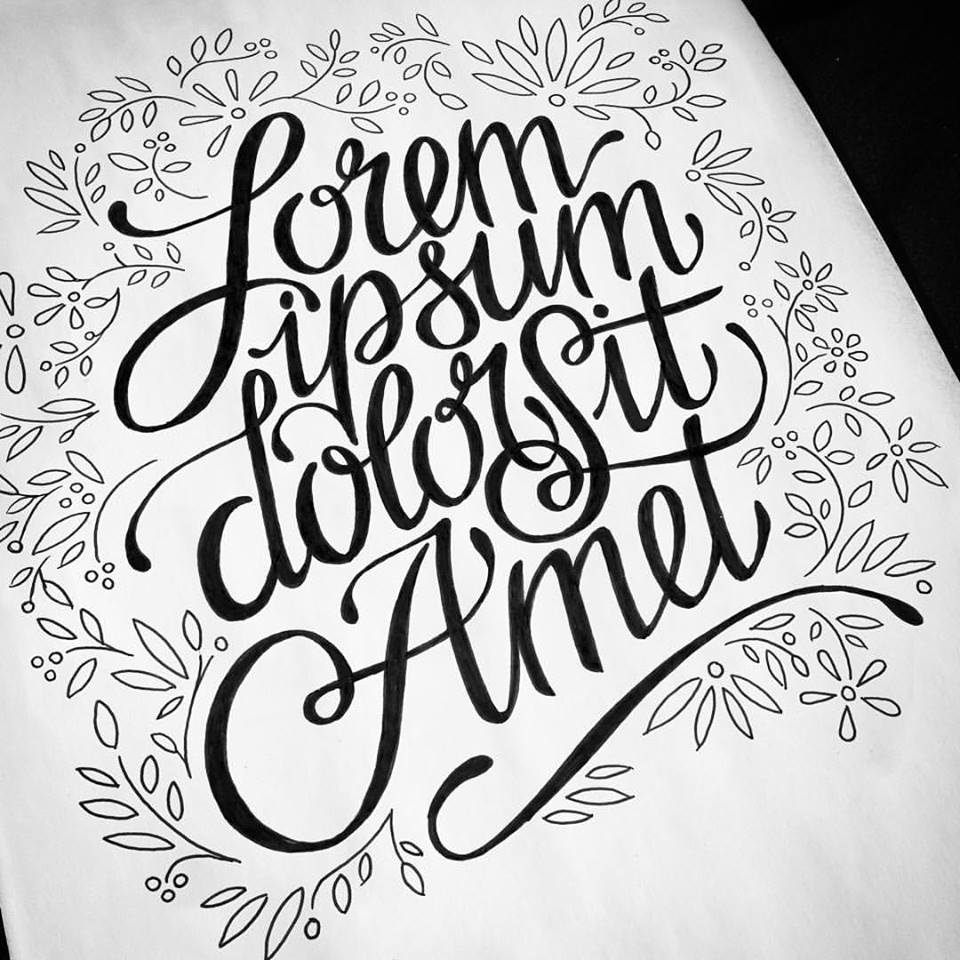 Lorem
ipsum
dolor Sit
Amet